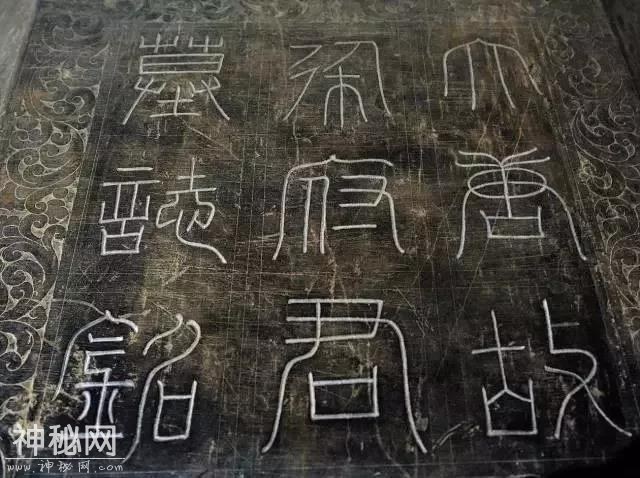 大唐故
府君
墓誌銘
神秘网
www.神秘网.com